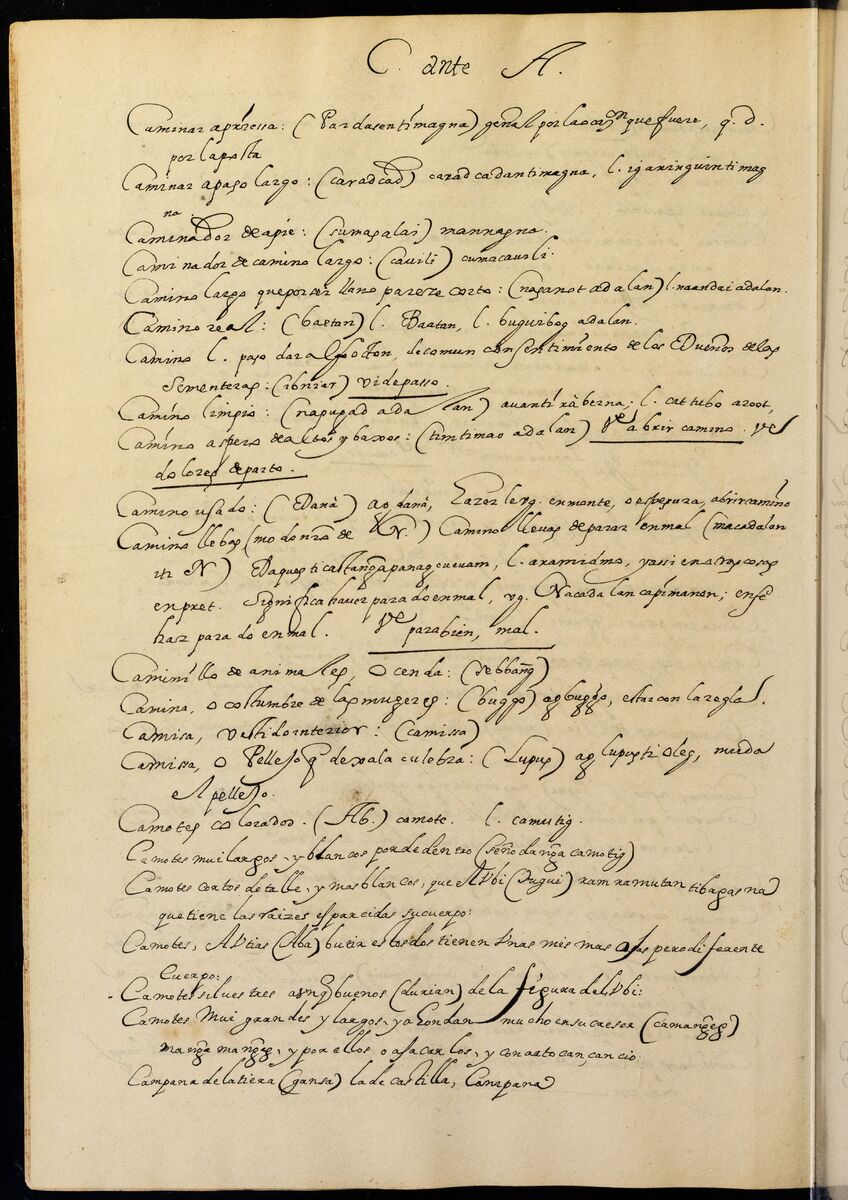 C. ante A.
Caminar apriessa: (Pardasentimagna) genal por la ocaon que fuere, q. d.
por la posta
Caminar a paso largo: (caradcad) caradcadantimagna, l. igaringuintimag
na.
Caminador de apie: (sumagalai) mannagna.
Caminador de camino largo: (cavili) cumacavili.
Camino largo que por ser llano parece corto: (naganot adalan) l. naandai adalan.
Camino real: (baetan) l. Baatan, l. buguibog adalan.
Camino l. paso dar alfocton, de comun consentimiento de los Dueños de las
sementeras: (ibriar) vide passo.
Camino limpio: (napugad a dalan) avantì ràberna; l. cattubo aroot,
Camino aspero de altos y baxos: (timtimao adalan) Ve abrir camino. Ve
dolores de parto.
Camino usado: (Danà) ag danà, hazerle vg. en monte, o espesura, abrir camino
Camino llebas (modo nro de N.) Camino llevas de parar en mal (macadalan
iti N) Daques ticastanga panaguevam, l. aramidmo, y assi en otras cosas
en pret. significa haver parado en mal, vg. Nacadalan capimanon; ense
haz parado en mal. Ve parabien, mal.
Caminillo de animales, o cenda: (sebbang)
Camina, o costumbre de las mugeres: (buggo) ag buggo, estar con la regla.
Camisa, vestido interior: (camissa)
Camissa, o Pellejo q dexa la culebra: (Lupus) ag lupus ti oleg, muda
el pellejo.
Camotes colorados. (Ab.) camote. l. camutig.
Camotes mui largos, y blancos por de dentro (señodanga camotig)
Camotes cortos de talle, y mas blancos, que el Vbi (Dugui) ramramutan tibagas na
que tiene las raizes esparcidas su cuerpo:
Camotes, AVtias (Aba) butir estos dos tienen vnas mismas ojas pero diferente
Cuerpo:
Camotes silvestres aunq buenos (durian) de la figura del Vbi:
Camotes Mui grandes y largos, y ahondan mucho en su creser (camanges)
manga manges, y por ellos o a sacarlos, y con arto cançancio
Campana de la tiera (gansa) la de castilla, Campana